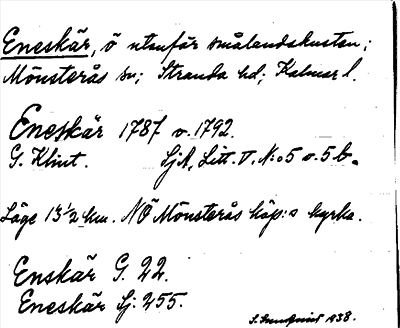 Eneskär, ö utanför smålandskusten;
Mönsterås sn; Stranda hd; Kalmar l.
Eneskär 1787 o. 1792.
G. Klint. SjA, Litt. V. N:o 5 o. 5 b.
Läge 13 1/2 km. NÖ Mönsterås köp:s kyrka.
Enskär G. 22.
Eneskär Sj: 255.
1938.